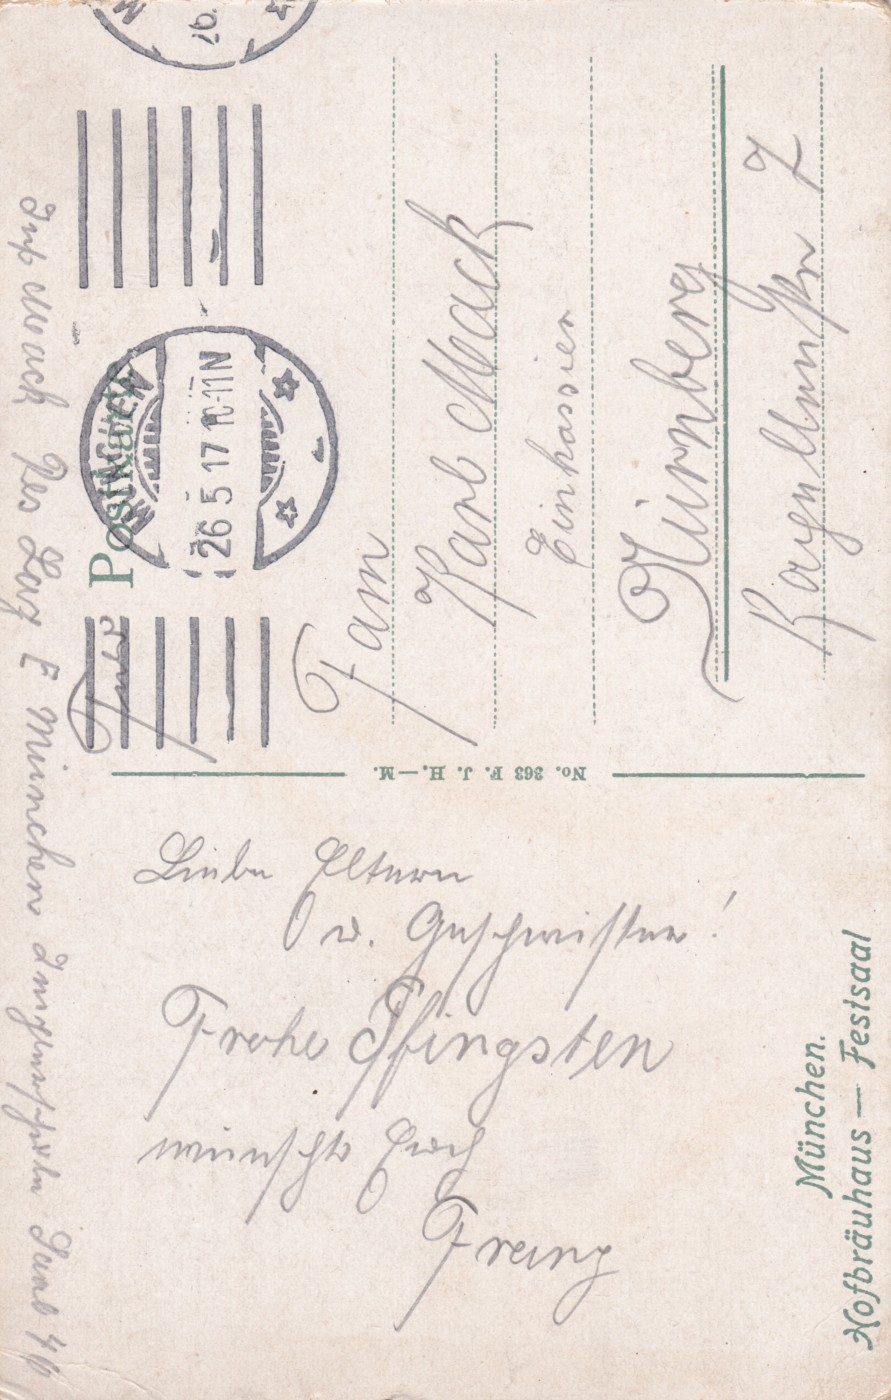 Inf Mack Res Laz E München Luisenschule Saal 46
Postkarte
MÜNCHEN
26 5 17 10-11N
26.
Fam
Karl Mack
Einkassier
Nürnberg
No. 363 F. J. H.—M.
Liebe Eltern
u. Geschwister!
Frohe Pfingsten
wünscht Euch
Franz
München.
Hofbräuhaus — Festsaal